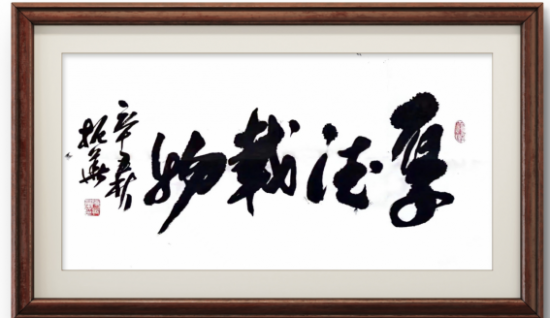 厚德載物
辛丑秋